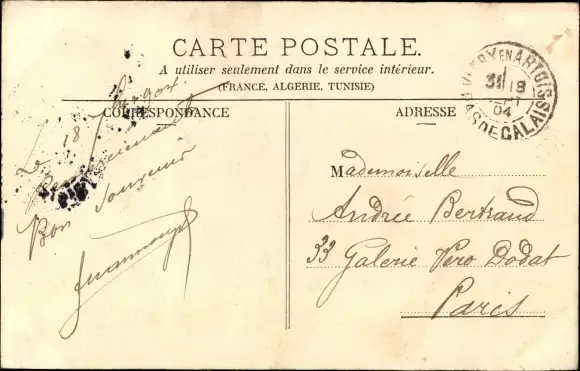 CARTE POSTALE.
A utiliser seulement dans le service intérieur.
(FRANCE, ALGERIE, TUNISIE)
CORRESPONDANCE
ADRESSE
Le 18
Bon Souvenir
EN ARTOIS
18
04
PAS DE CALAIS
Mademoiselle
Andrée Bertrand
33 Galerie Vero Dodat
Paris